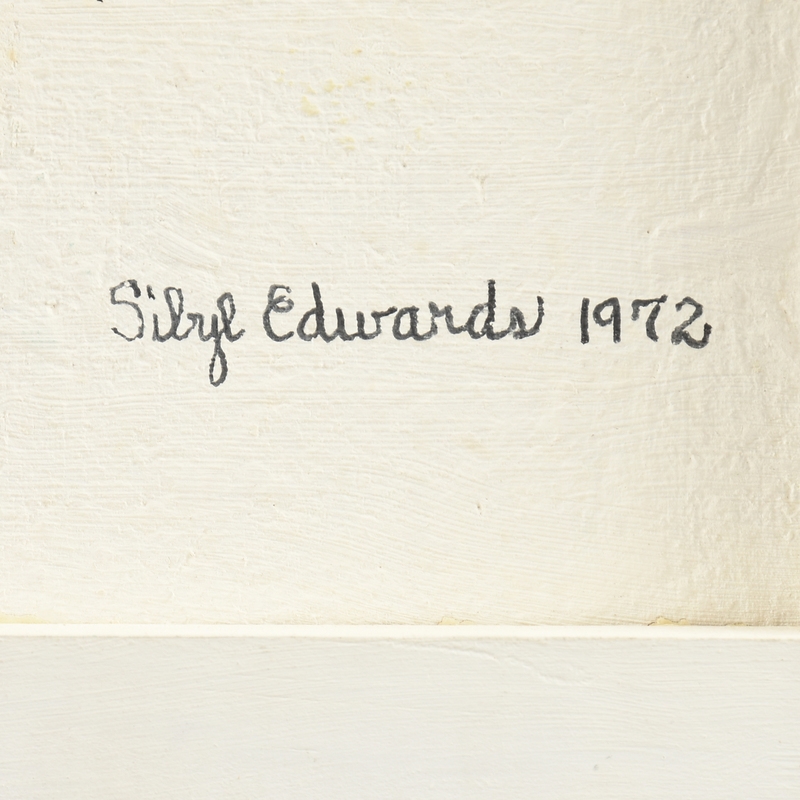 Sibyl Edwards 1972